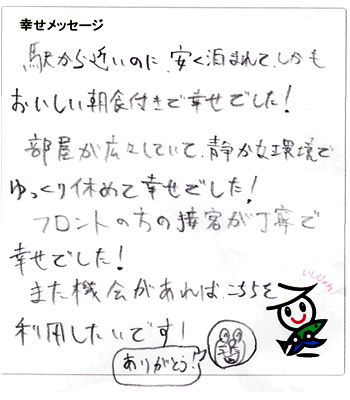 幸せメッセージ
駅から近いのに、安く泊まれて、しかも
おいしい朝食付きで幸せでした!
部屋が広々していて、静かな環境で
ゆっくり休めて幸せでした!
フロントの方の接客が丁寧で
幸せでした!
また機会があれば、こちらを
利用したいです!
ありがとう!